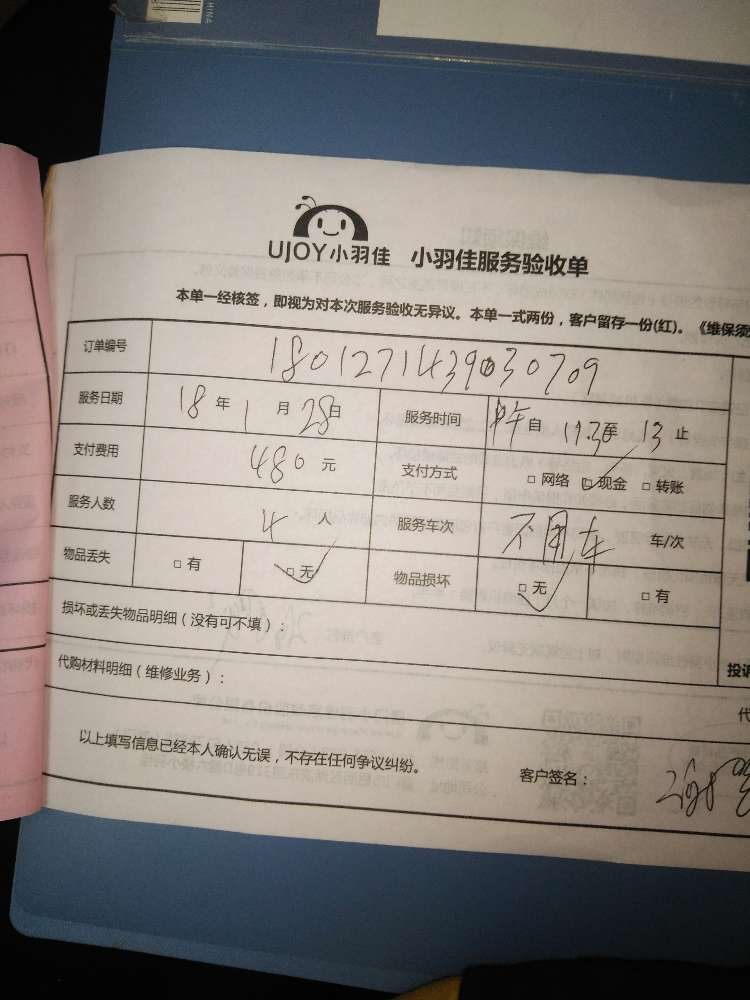 CHINA
UJOY小羽佳 小羽佳服务验收单
本单一经核签，即视为对本次服务验收无异议。本单一式两份，客户留存一份(红)。《维保须
订单编号 1801271439030709
服务日期 18 年 1 月 28日 服务时间 自 11.30至 13 止
支付费用 480 元 支付方式 □ 网络 □ 现金 □ 转账
服务人数 4 人 服务车次 不用车 车/次
物品丢失 □ 有 □ 无 物品损坏 □ 无 □ 有
损坏或丢失物品明细（没有可不填）：
投诉
代购材料明细（维修业务）：
代
以上填写信息已经本人确认无误，不存在任何争议纠纷。 客户签名：